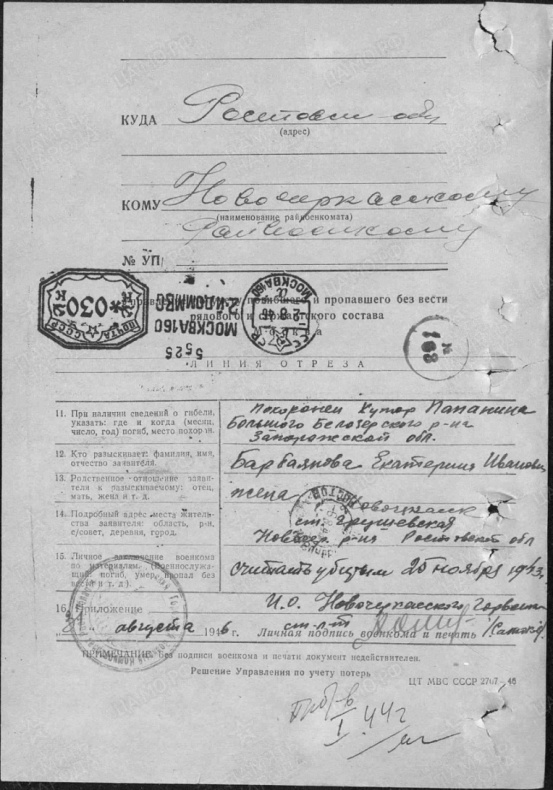 КУДА Ростовск обл
(адрес)
КОМУ Новочеркасскому
(наименование райвоенкомата)
Райвоенкому
№ УП
погибшего и пропавшего без вести
рядового и сержантского состава
ПОЧТА СССР 030 К
МОСКВА 160
5525
МОСКВА 160
№ 168
ЛИНИЯ ОТРЕЗА
11. При наличии сведений о гибели, указать: где и когда (месяц, число, год) погиб, место похорон.
похоронен Хутор Папанина
Большого Белозерского р-на
Запорожской обл.
12. Кто разыскивает: фамилия, имя, отчество заявителя.
Барбаянова Екатерина Иванов
13. Родственное отношение заявителя к разыскиваемому: отец, мать, жена и т. д.
жена
14. Подробный адрес места жительства заявителя: область, р-н, с/совет, деревня, город.
Новочеркасск
ст. Грушевская
Новочер. р-на Ростовской обл
15. Личное заключение военкома по материалам. (Военнослужащий: погиб, умер, пропал без вести и т. д.)
считать убитым 25 ноября 1943,
16. Приложение
И.О. Новочеркасского Горвоен
августа 1946 г. ст. л-т
Личная подпись военкома и печать
ПРИМЕЧАНИЕ: Без подписи военкома и печати документ недействителен.
Решение Управления по учету потерь
ЦТ МВС СССР 2707—46
I 44 г